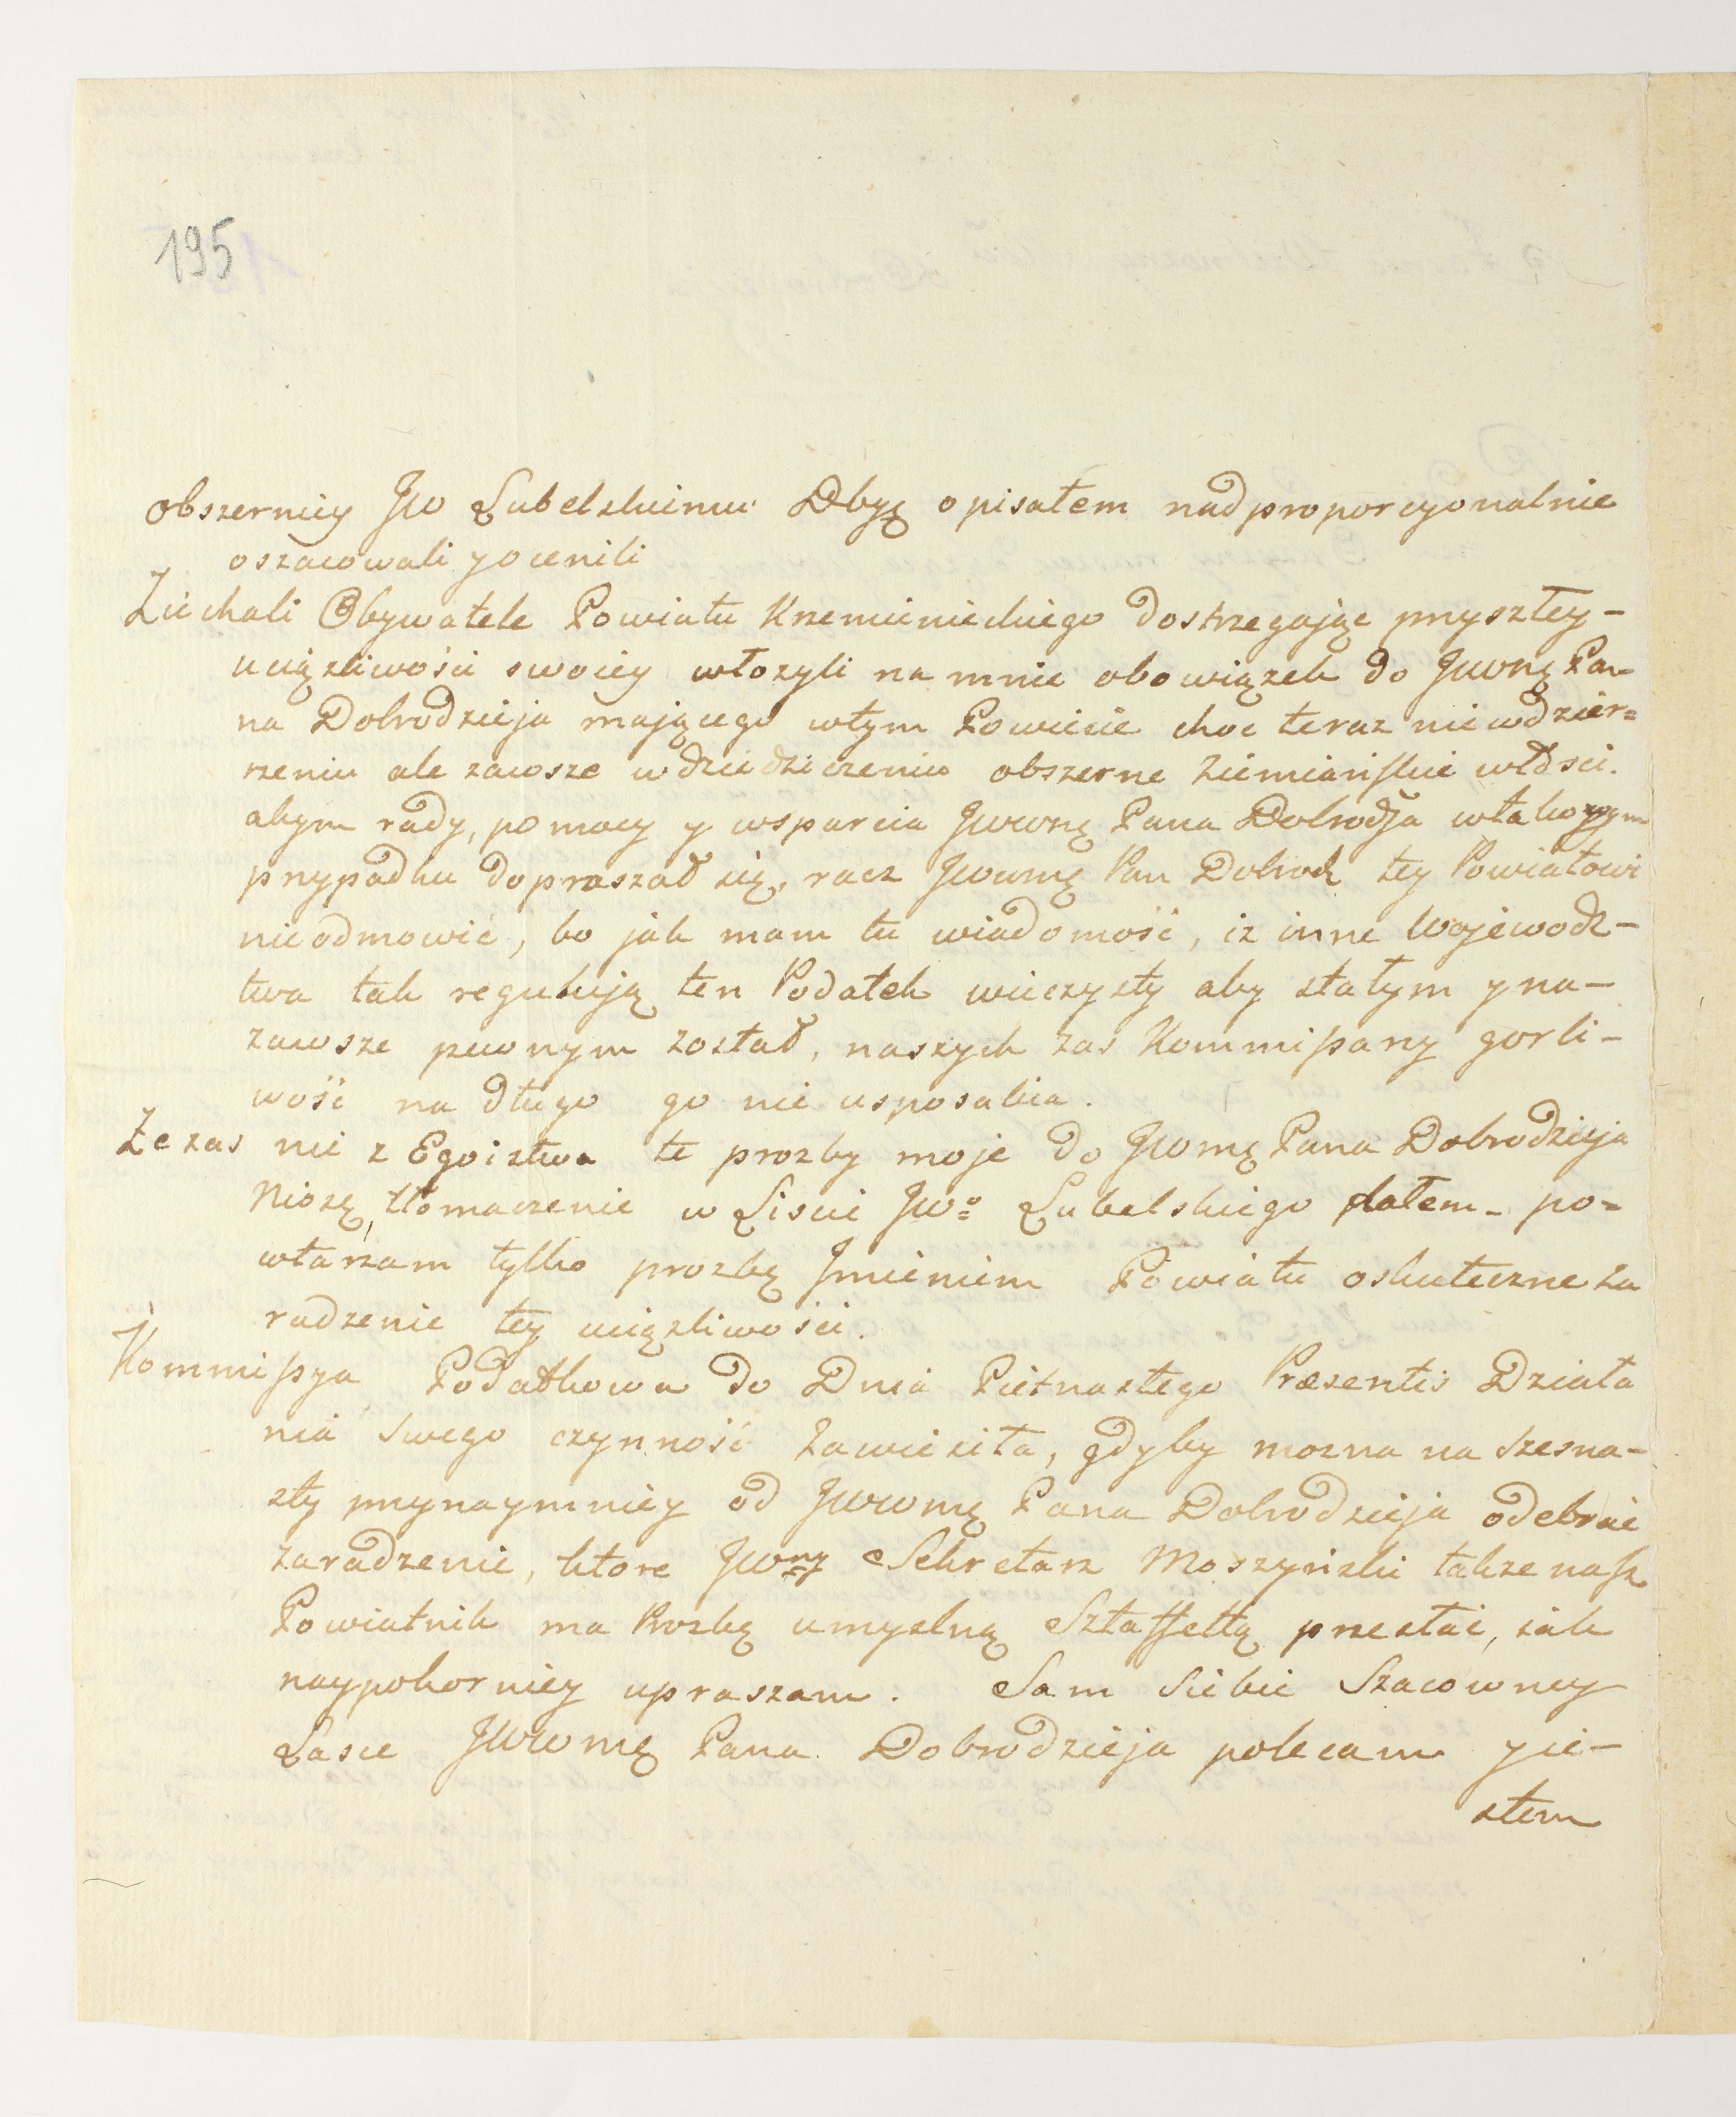 195
obszerniey JW Lubelskiemu Dbyę opisałem nadproporcyonalnie
oszacowali y ocenili
Ziechali Obywatele Powiatu Krzemienieckiego dostrzegając przyszłey-
uciązliwości swoiey włozyli na mnie obowiązek do JWWnę Pa-
na Dobrodzieja mającego wtym Powiecie choc teraz niewdzier=
rzeniu ale zawsze w dziedziczeniu obszerne Ziemiańskie włości.
abym rady, pomocy y wsparcia JWWnę Pana Dobrodja wtakowym
przypadku dopraszał się, racz JWWmę Pan Dobrodz tey Powiatowi
nieodmowić, bo jak mam tu wiadomość, iz inne Wojewodz-
twa tak regulują ten Podatek wieczysty aby stałym y na-
zawsze pewnym został, naszych zas Kommissarzy gorli-
wość na długo go nie usposabia.
Ze zas nie z Egoistwa te prozby moje do JWWmę Pana Dobrodzieja
Niosę, tłomaczenie w Liscie JWo Lubelskiego dałem - po=
wtarzam tylko prozbę Jmieniem Powiatu oskuteczne Za
radzenie tey uciązliwości.
Kommissya Podatkowa do Dnia Piętnastego Præsentis Działa
nia swego czynność Zawiesiła, gdyby mozna na szesna-
sty przynaymniey od JWWmę Pana Dobrodzieja odebrać
zaradzenie, ktore JWny Sekretarz Moszyński takze nasz
Powiatnik ma Prozbę umyslną Sztaffettą przesłać, iak
naypokorniey upraszam. Sam Siebie Szacowney
Łasce JWWmę Pana Dobrodzieja polecam y ie-
stem